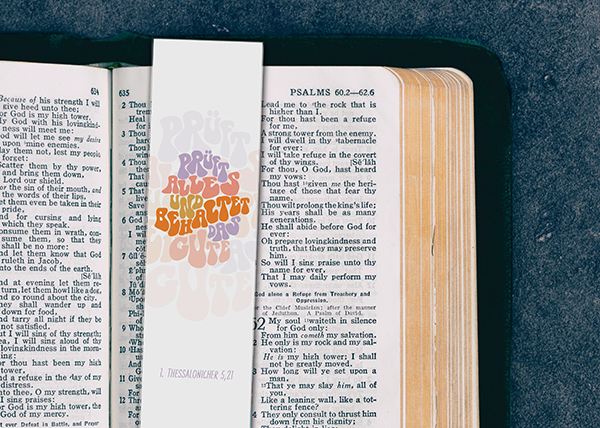 634
Because of his strength I will
give heed unto thee;
For God is my high tower.
My God with his lovingkind-
ness will meet me:
God will let me see my desire
upon mine enemies.
lay them not, lest my people
forget:
Scatter them by thy power,
and bring them down,
Lord our shield.
For the sin of their mouth, and
the words of their lips,
Let them even be taken in their
pride,
and for cursing and lying
which they speak.
Consume them in wrath, con-
sume them, so that they
shall be no more:
And let them know that God
ruleth in Jacob,
unto the ends of the earth.
[Sē'lăh
And at evening let them re-
turn, let them howl like a dog,
and go round about the city.
They shall wander up and
down for food,
And tarry all night if they be
not satisfied.
But I will sing of thy strength;
Yea, I will sing aloud of thy
lovingkindness in the morn-
ing:
For thou hast been my high
tower,
And a refuge in the day of my
distress.
Unto thee, O my strength, will
I sing praises:
For God is my high tower, the
God of my mercy.
er ever Defeat in Battle, and Prayer
635
2 Thou
Heal
3 Thou
Thou
4 Thou
5 That
Save
6 God
7
8
9 Who
10 Hast
11 Give
12
PRÜFT
PRÜFT
ALLES
UND
BEHALTET
DAS
GUTE
GUTE
1. THESSALONICHER 5,21
PSALMS 60.2—62.6
Lead me to the rock that is
higher than I.
For thou hast been a refuge
for me,
A strong tower from the enemy.
I will dwell in thy tabernacle
for ever:
I will take refuge in the covert
of thy wings. [Sē'lăh
For thou, O God, hast heard
my vows:
Thou hast given me the heri-
tage of those that fear thy
name.
Thou wilt prolong the king's life;
His years shall be as many
generations.
He shall abide before God for
ever:
Oh prepare lovingkindness and
truth, that they may preserve
him.
So will I sing praise unto thy
name for ever,
That I may daily perform my
vows.
God alone a Refuge from Treachery and
Oppression.
For the Chief Musician; after the manner
of Jeduthun. A Psalm of David.
62 My soul waiteth in silence
for God only:
From him cometh my salvation.
He only is my rock and my sal-
vation:
He is my high tower; I shall
not be greatly moved.
How long will ye set upon a
man,
That ye may slay him, all of
you,
Like a leaning wall, like a tot-
tering fence?
They only consult to thrust him
down from his dignity;